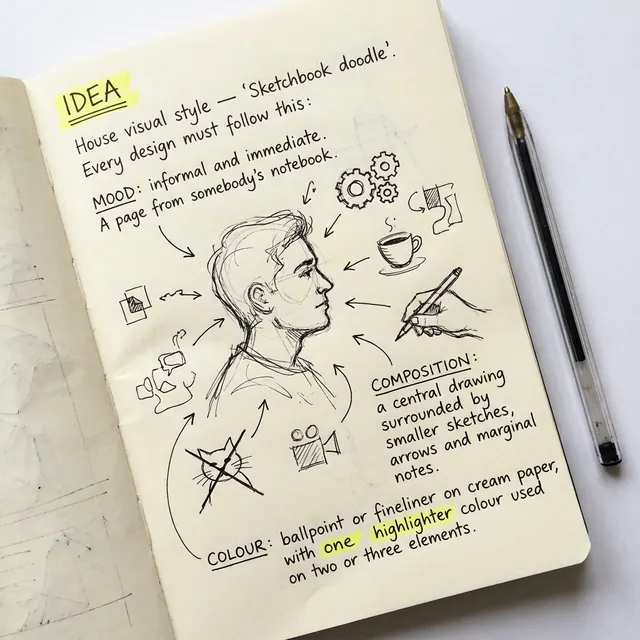 IDEA
House visual style — 'Sketchbook doodle'.
Every design must follow this:
MOOD: informal and immediate.
A page from somebody's notebook.
COMPOSITION:
a central drawing
surrounded by
smaller sketches,
arrows and marginal
notes.
COLOUR: ballpoint or fineliner on cream paper,
with one highlighter colour used
on two or three elements.